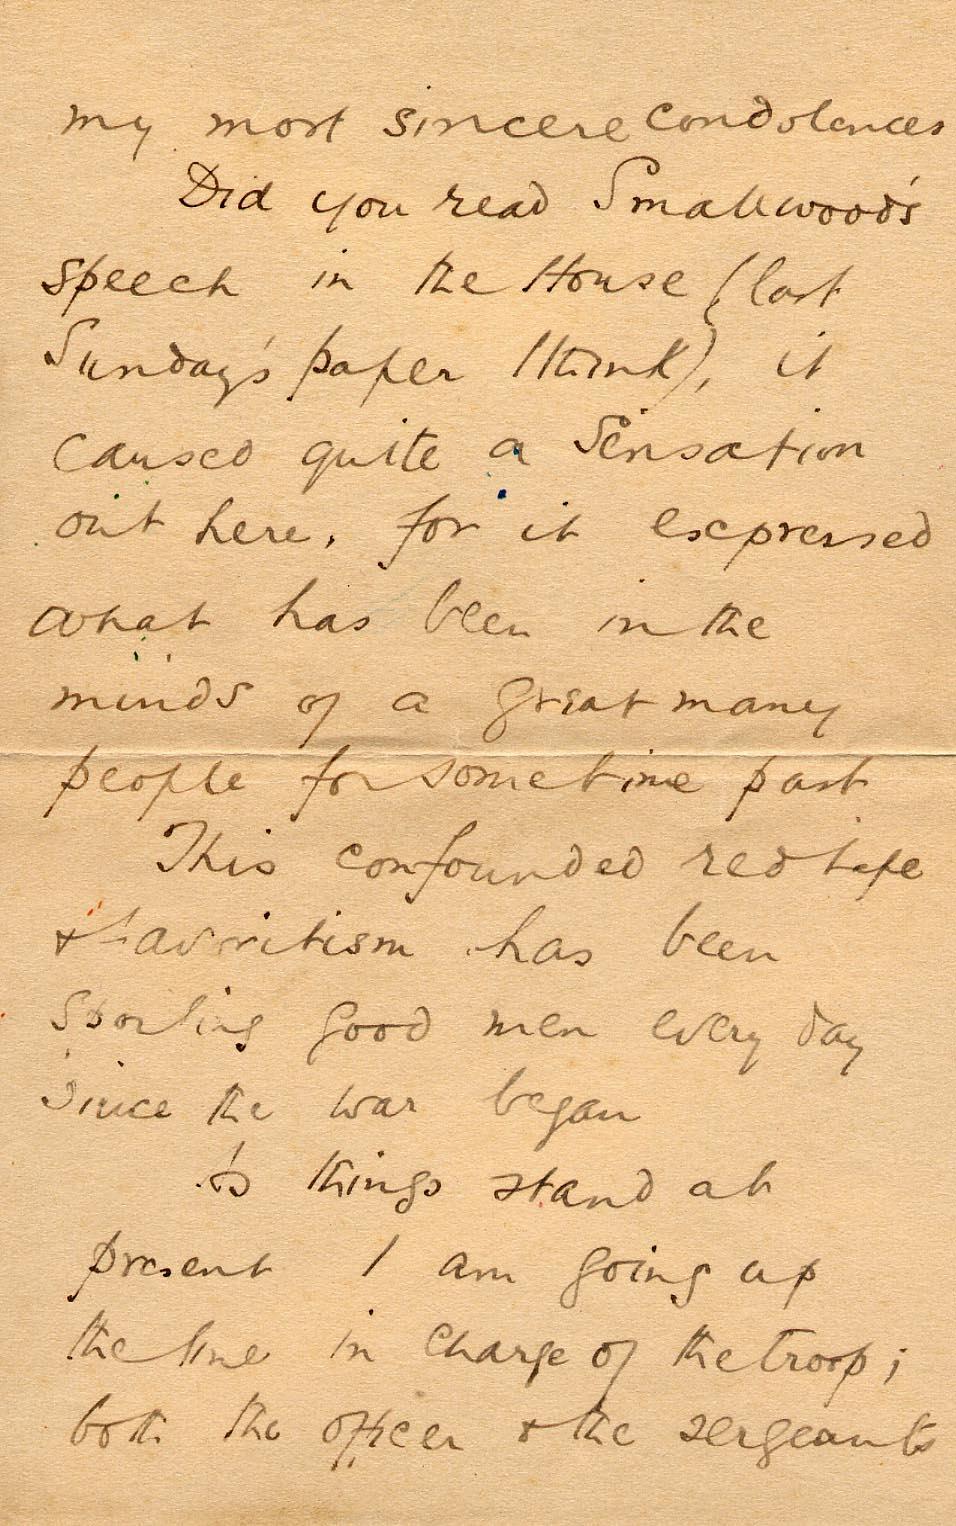 my most sincere condolences
Did you read Smallwood's
speech in the House (last
Sunday's paper I think), it
caused quite a sensation
out here, for it expressed
what has been in the
minds of a great many
people for sometime past
This confounded red tape
& favoritism has been
spoiling good men every day
since the war began
As things stand at
present I am going up
the line in charge of the troop;
both the officer & the sergeants